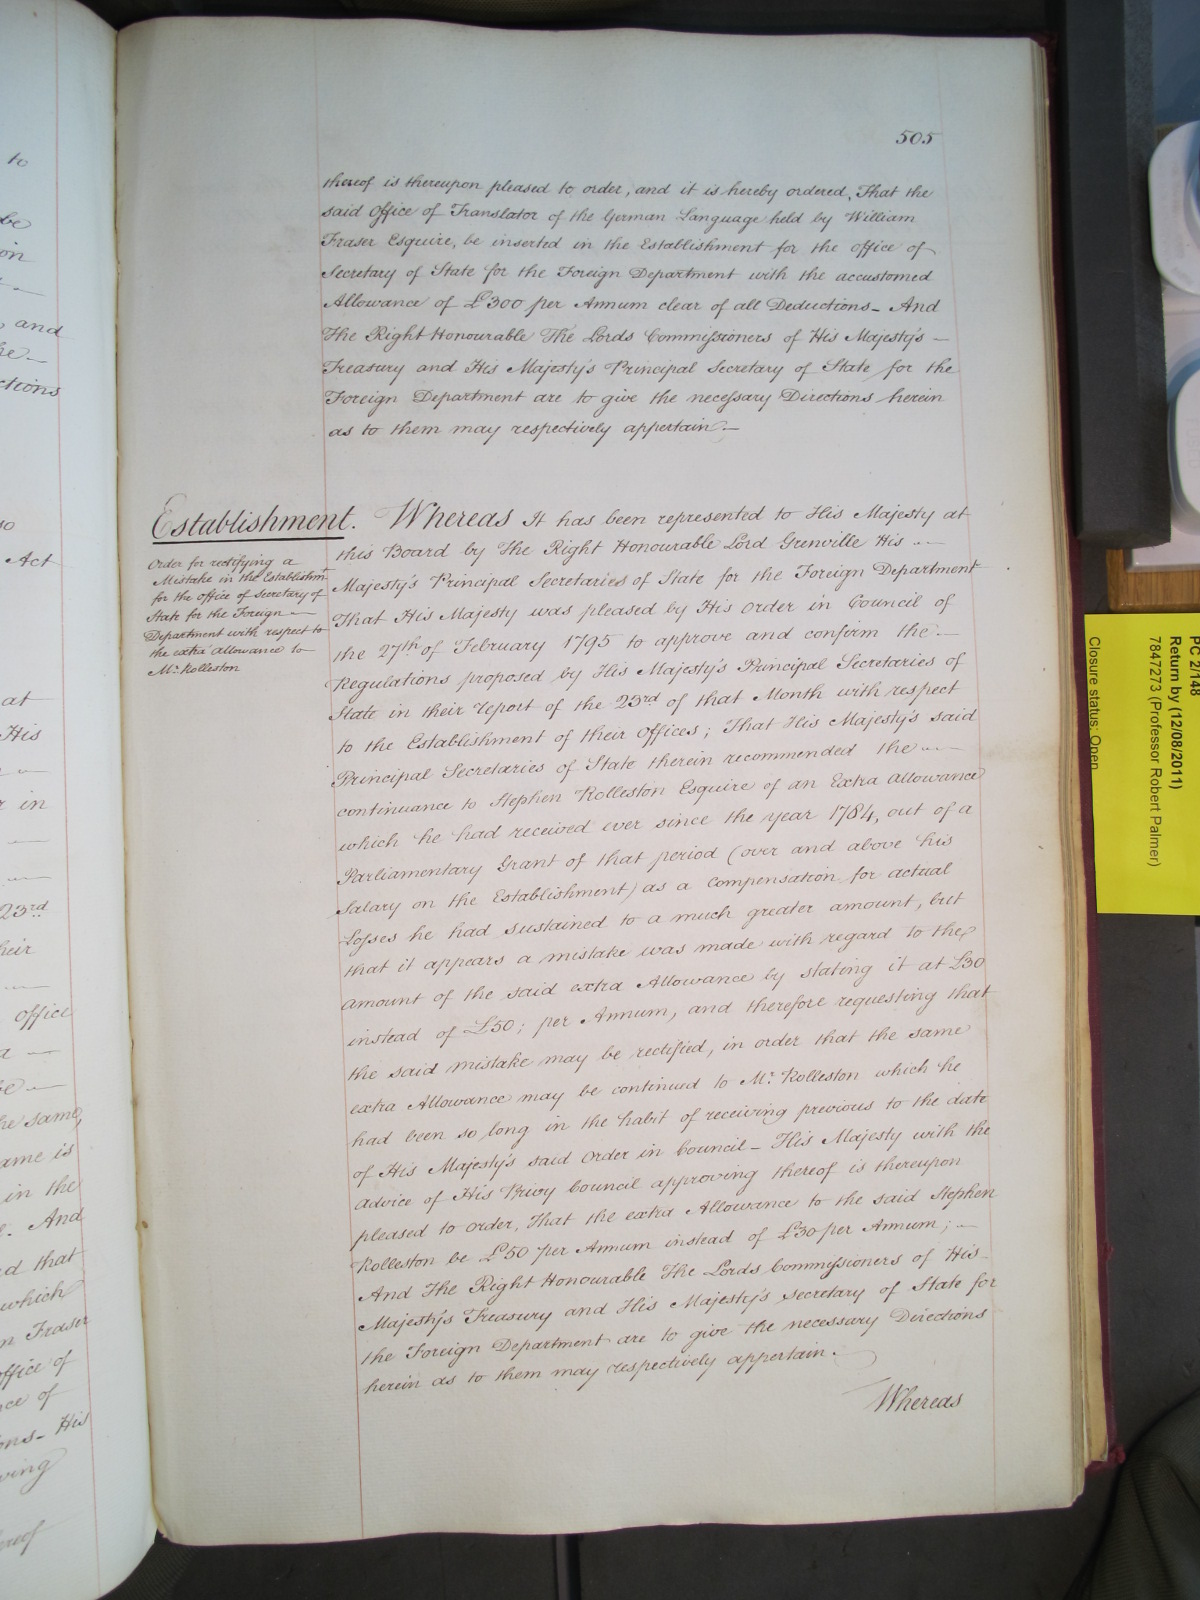 505
thereof is thereupon pleased to order, and it is hereby ordered, That the
said Office of Translator of the German Language held by William
Fraser Esquire, be inserted in the Establishment for the office of
Secretary of State for the Foreign Department with the accustomed
Allowance of £300 per Annum clear of all Deductions - And
The Right Honourable The Lords Commissioners of His Majesty's —
Treasury and His Majesty's Principal Secretary of State for the
Foreign Department are to give the necessary Directions herein
as to them may respectively appertain. —
Establishment.
Order for rectifying a
Mistake in the Establishmt
for the office of Secretary of
State for the Foreign —
Department with respect to
the extra allowance to
Mr. Rolleston
Whereas It has been represented to His Majesty at
this Board by The Right Honourable Lord Grenville His —
Majesty's Principal Secretaries of State for the Foreign Department
That His Majesty was pleased by His Order in Council of
the 27th of February 1795 to approve and confirm the —
Regulations proposed by His Majesty's Principal Secretaries of
State in their report of the 23rd of that Month with respect
to the Establishment of their Offices; That His Majesty's said
Principal Secretaries of State therein recommended the —
continuance to Stephen Rolleston Esquire of an Extra Allowance
which he had received ever since the year 1784, out of a
Parliamentary Grant of that period (over and above his
Salary on the Establishment) as a compensation for actual
Losses he had sustained to a much greater amount, but
that it appears a mistake was made with regard to the
amount of the said extra Allowance by stating it at £30
instead of £50; per Annum, and therefore requesting that
the said mistake may be rectified, in order that the same
extra Allowance may be continued to Mr. Rolleston which he
had been so long in the habit of receiving previous to the date
of His Majesty's said Order in Council - His Majesty with the
advice of His Privy Council approving thereof is thereupon
pleased to order, That the extra Allowance to the said Stephen
Rolleston be £50 per Annum instead of £30 per Annum; —
And The Right Honourable The Lords Commissioners of His
Majesty's Treasury and His Majesty's Secretary of State for
the Foreign Department are to give the necessary Directions
herein as to them may respectively appertain.
Whereas
to
be
and
ctions
Act
at
His
r in
23rd
heir
office
be —
he same,
ame is
in the
And
d that
which
n Fraser
office of
ce of
ons - His
ving
hereof
PC 2/148
Return by (12/08/2011)
7847273 (Professor Robert Palmer)
Closure status: Open